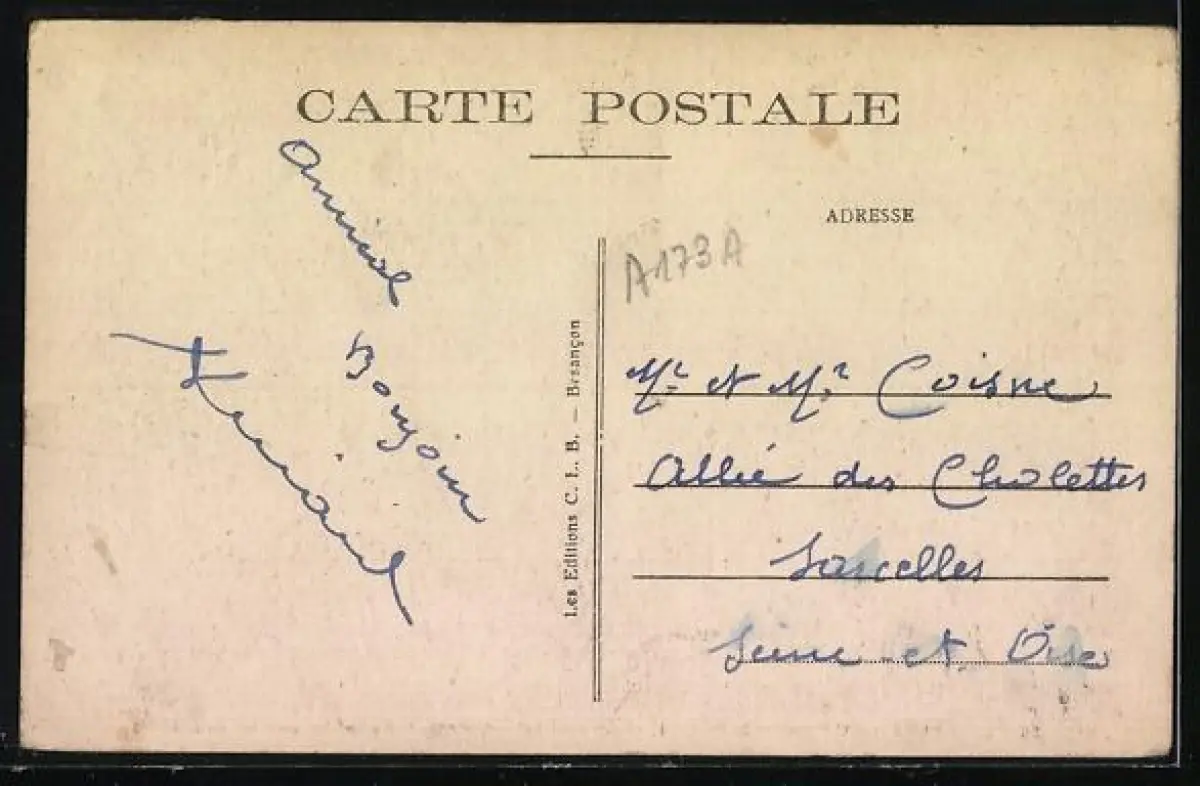 CARTE POSTALE
ADRESSE
A173A
Amical
Bonjour
Les Editions C. L. B. — Besançon
Mr et Mr Coisne
Allée des Cholettes
Sarcelles
Seine et Oise